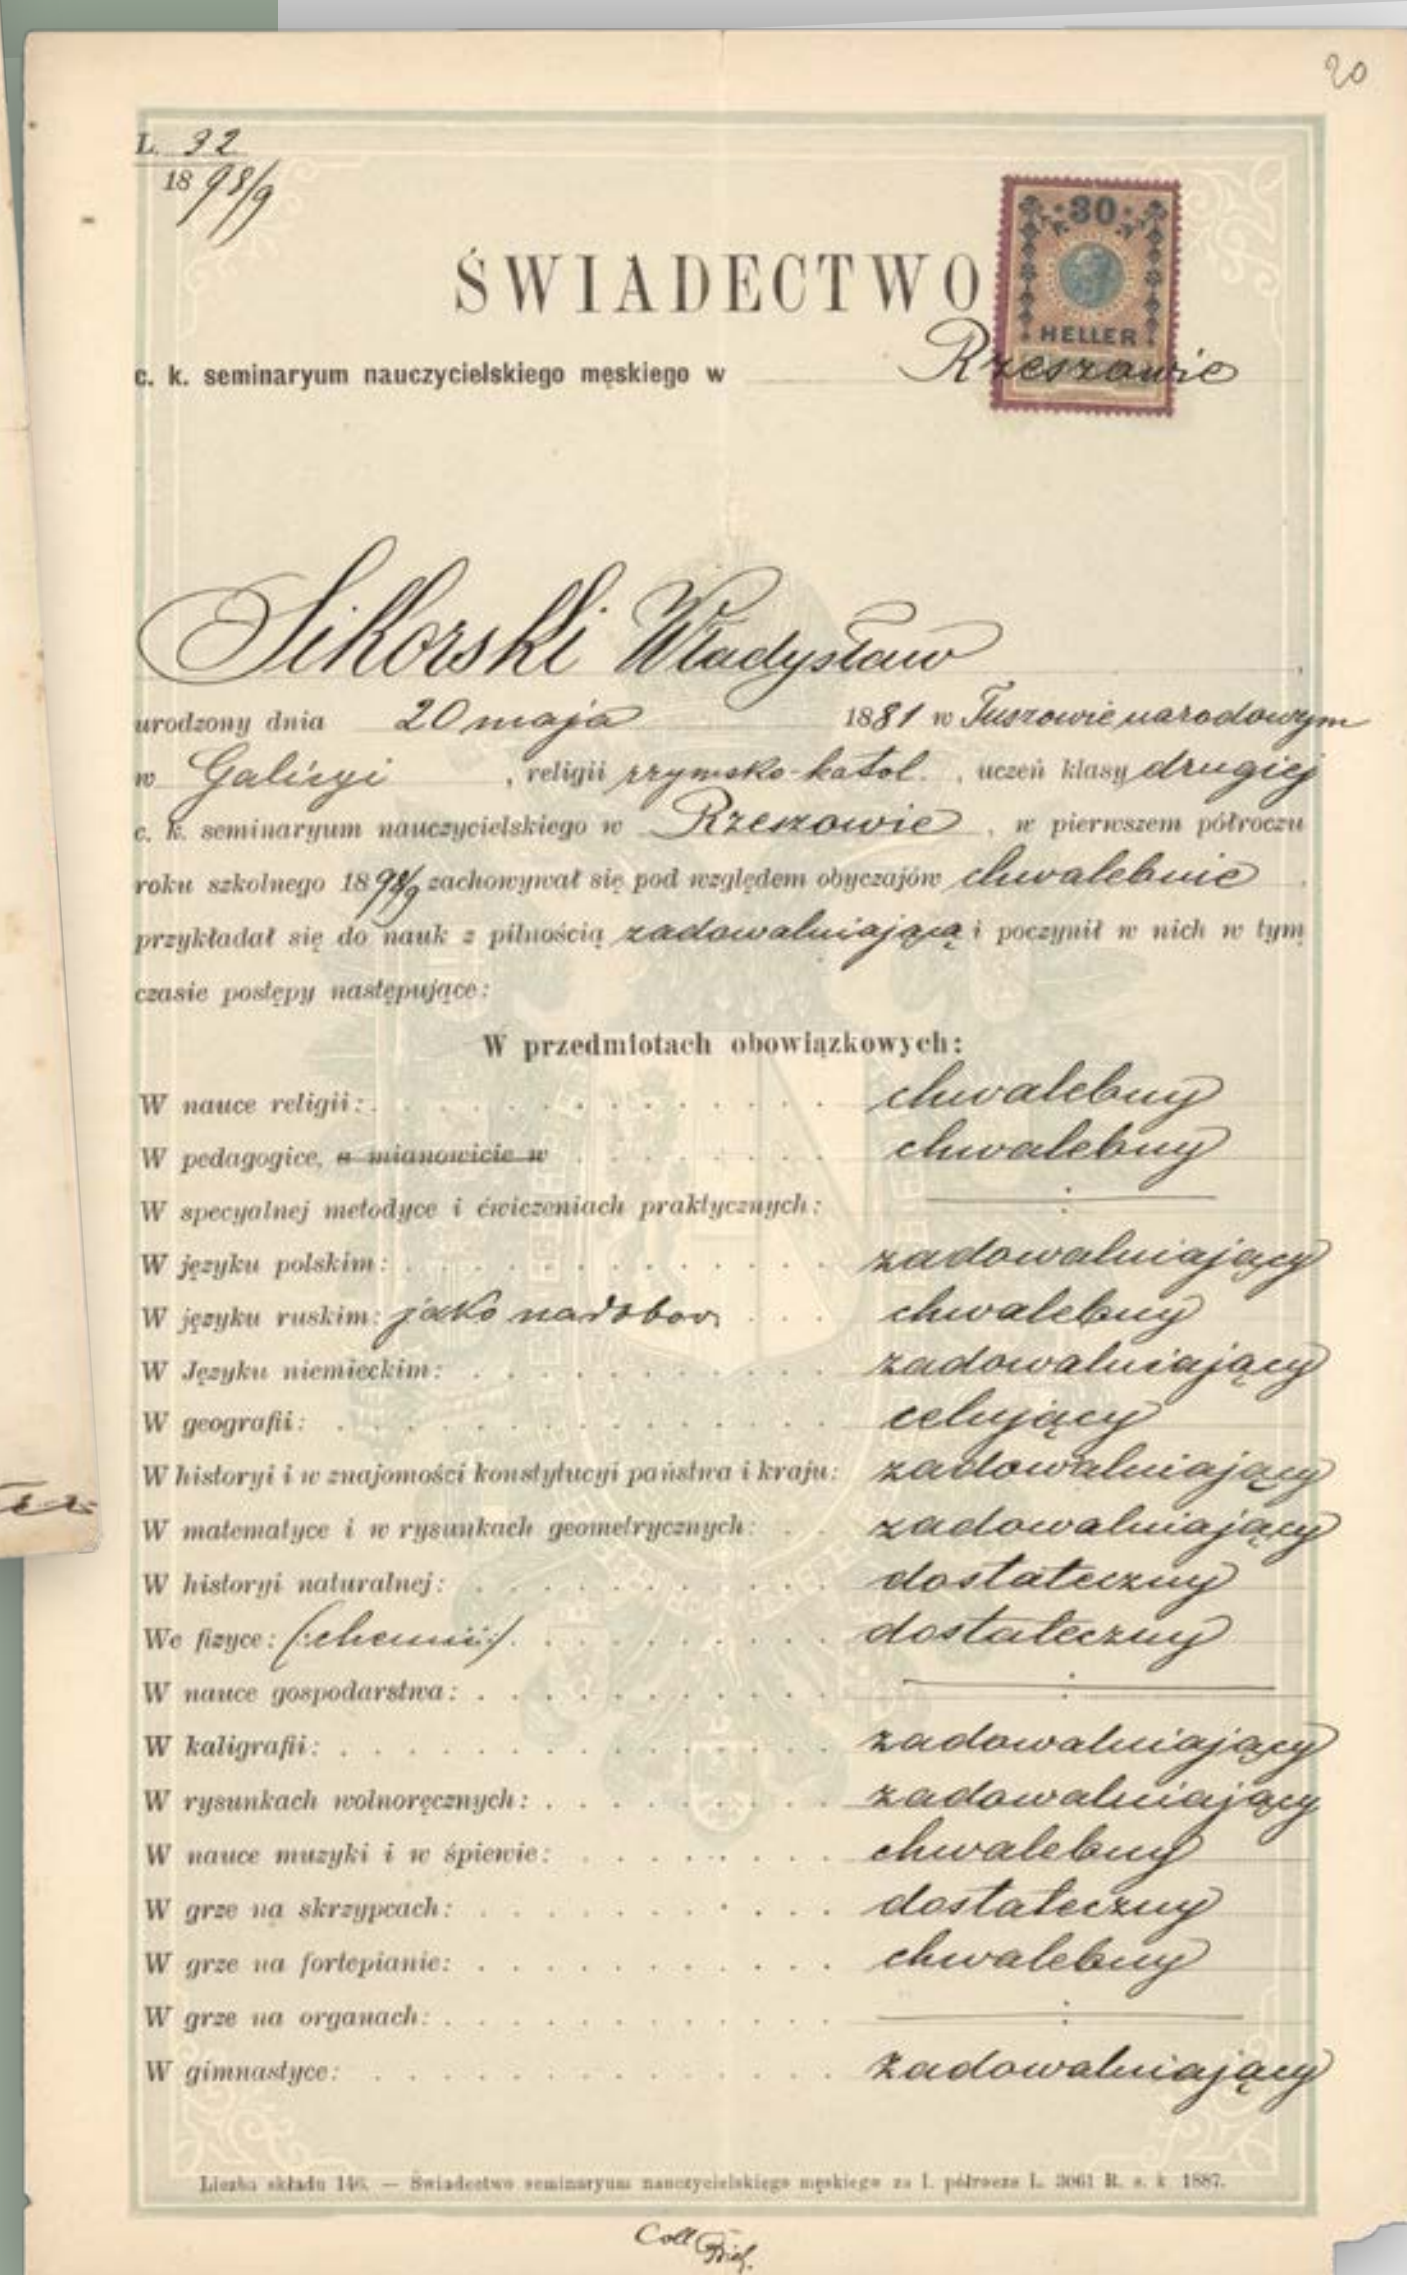 20
L. 32
18 98/9
30
HELLER
ŚWIADECTWO
c. k. seminaryum nauczycielskiego męskiego w Rzeszowie
Sikorski Władysław
urodzony dnia 20 maja 1881 w Tuszowie narodowym
w Galicyi, religii rzymsko-katol., uczeń klasy drugiej
c. k. seminaryum nauczycielskiego w Rzeszowie, w pierwszem półroczu
roku szkolnego 1898/9 zachowywał się pod względem obyczajów chwalebnie
przykładał się do nauk z pilnością zadowalniającą i poczynił w nich w tym
czasie postępy następujące:
W przedmiotach obowiązkowych:
W nauce religii: chwalebny
W pedagogice, a mianowicie w chwalebny
W specyalnej metodyce i ćwiczeniach praktycznych:
W języku polskim: zadowalniający
W języku ruskim: jako nadobow. chwalebny
W Języku niemieckim: zadowalniający
W geografii: celujący
W historyi i w znajomości konstytucyi państwa i kraju: zadowalniający
W matematyce i w rysunkach geometrycznych: zadowalniający
W historyi naturalnej: dostateczny
We fizyce: (:chemii:) dostateczny
W nauce gospodarstwa:
W kaligrafii: zadowalniający
W rysunkach wolnoręcznych: zadowalniający
W nauce muzyki i w śpiewie: chwalebny
W grze na skrzypcach: dostateczny
W grze na fortepianie: chwalebny
W grze na organach:
W gimnastyce: zadowalniający
Liczba składu 146. — Świadectwo seminaryum nauczycielskiego męskiego za I. półrocze L. 3061 R. s. k 1887.
Coll